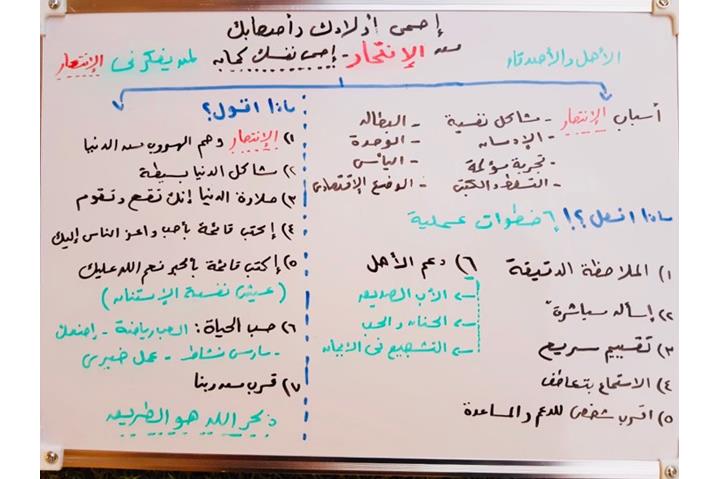 إحمى أولادك وأصحابك
من الإنتحار - إحمى نفسك كمان
الأهل والأصدقاء
لمن يفكر فى الإنتحار
أسباب الإنتحار
- مشاكل نفسية
- الإدمان
- تجربة مؤلمة
- التسلط والكبت
- البطالة
- الوحدة
- اليأس
- الوضع الإقتصادى
ماذا افعل؟! ٦ خطوات عملية
١) الملاحظة الدقيقة
٢) إسأله مباشرة
٣) تقييم سريع
٤) الاستماع بتعاطف
٥) اقرب شخص للدعم والمساعدة
٦) دعم الأهل
- الأب الصديق
- الحنان والحب
- التشجيع فى الإيجابيات
ماذا اقول؟
١) الإنتحار وهم الهروب من الدنيا
٢) مشاكل الدنيا بسيطة
٣) حلاوة الدنيا إنك تقع وتقوم
٤) إكتب قائمة بأحب واعز الناس إليك
٥) إكتب قائمة بأكبر نعم الله عليك
(عيش نفسية الإمتنان)
٦) حب الحياة: العب رياضة - إضحك
- مارس نشاط - عمل خيرى
٧) قرب من ربنا
ذكر الله هو الطريق